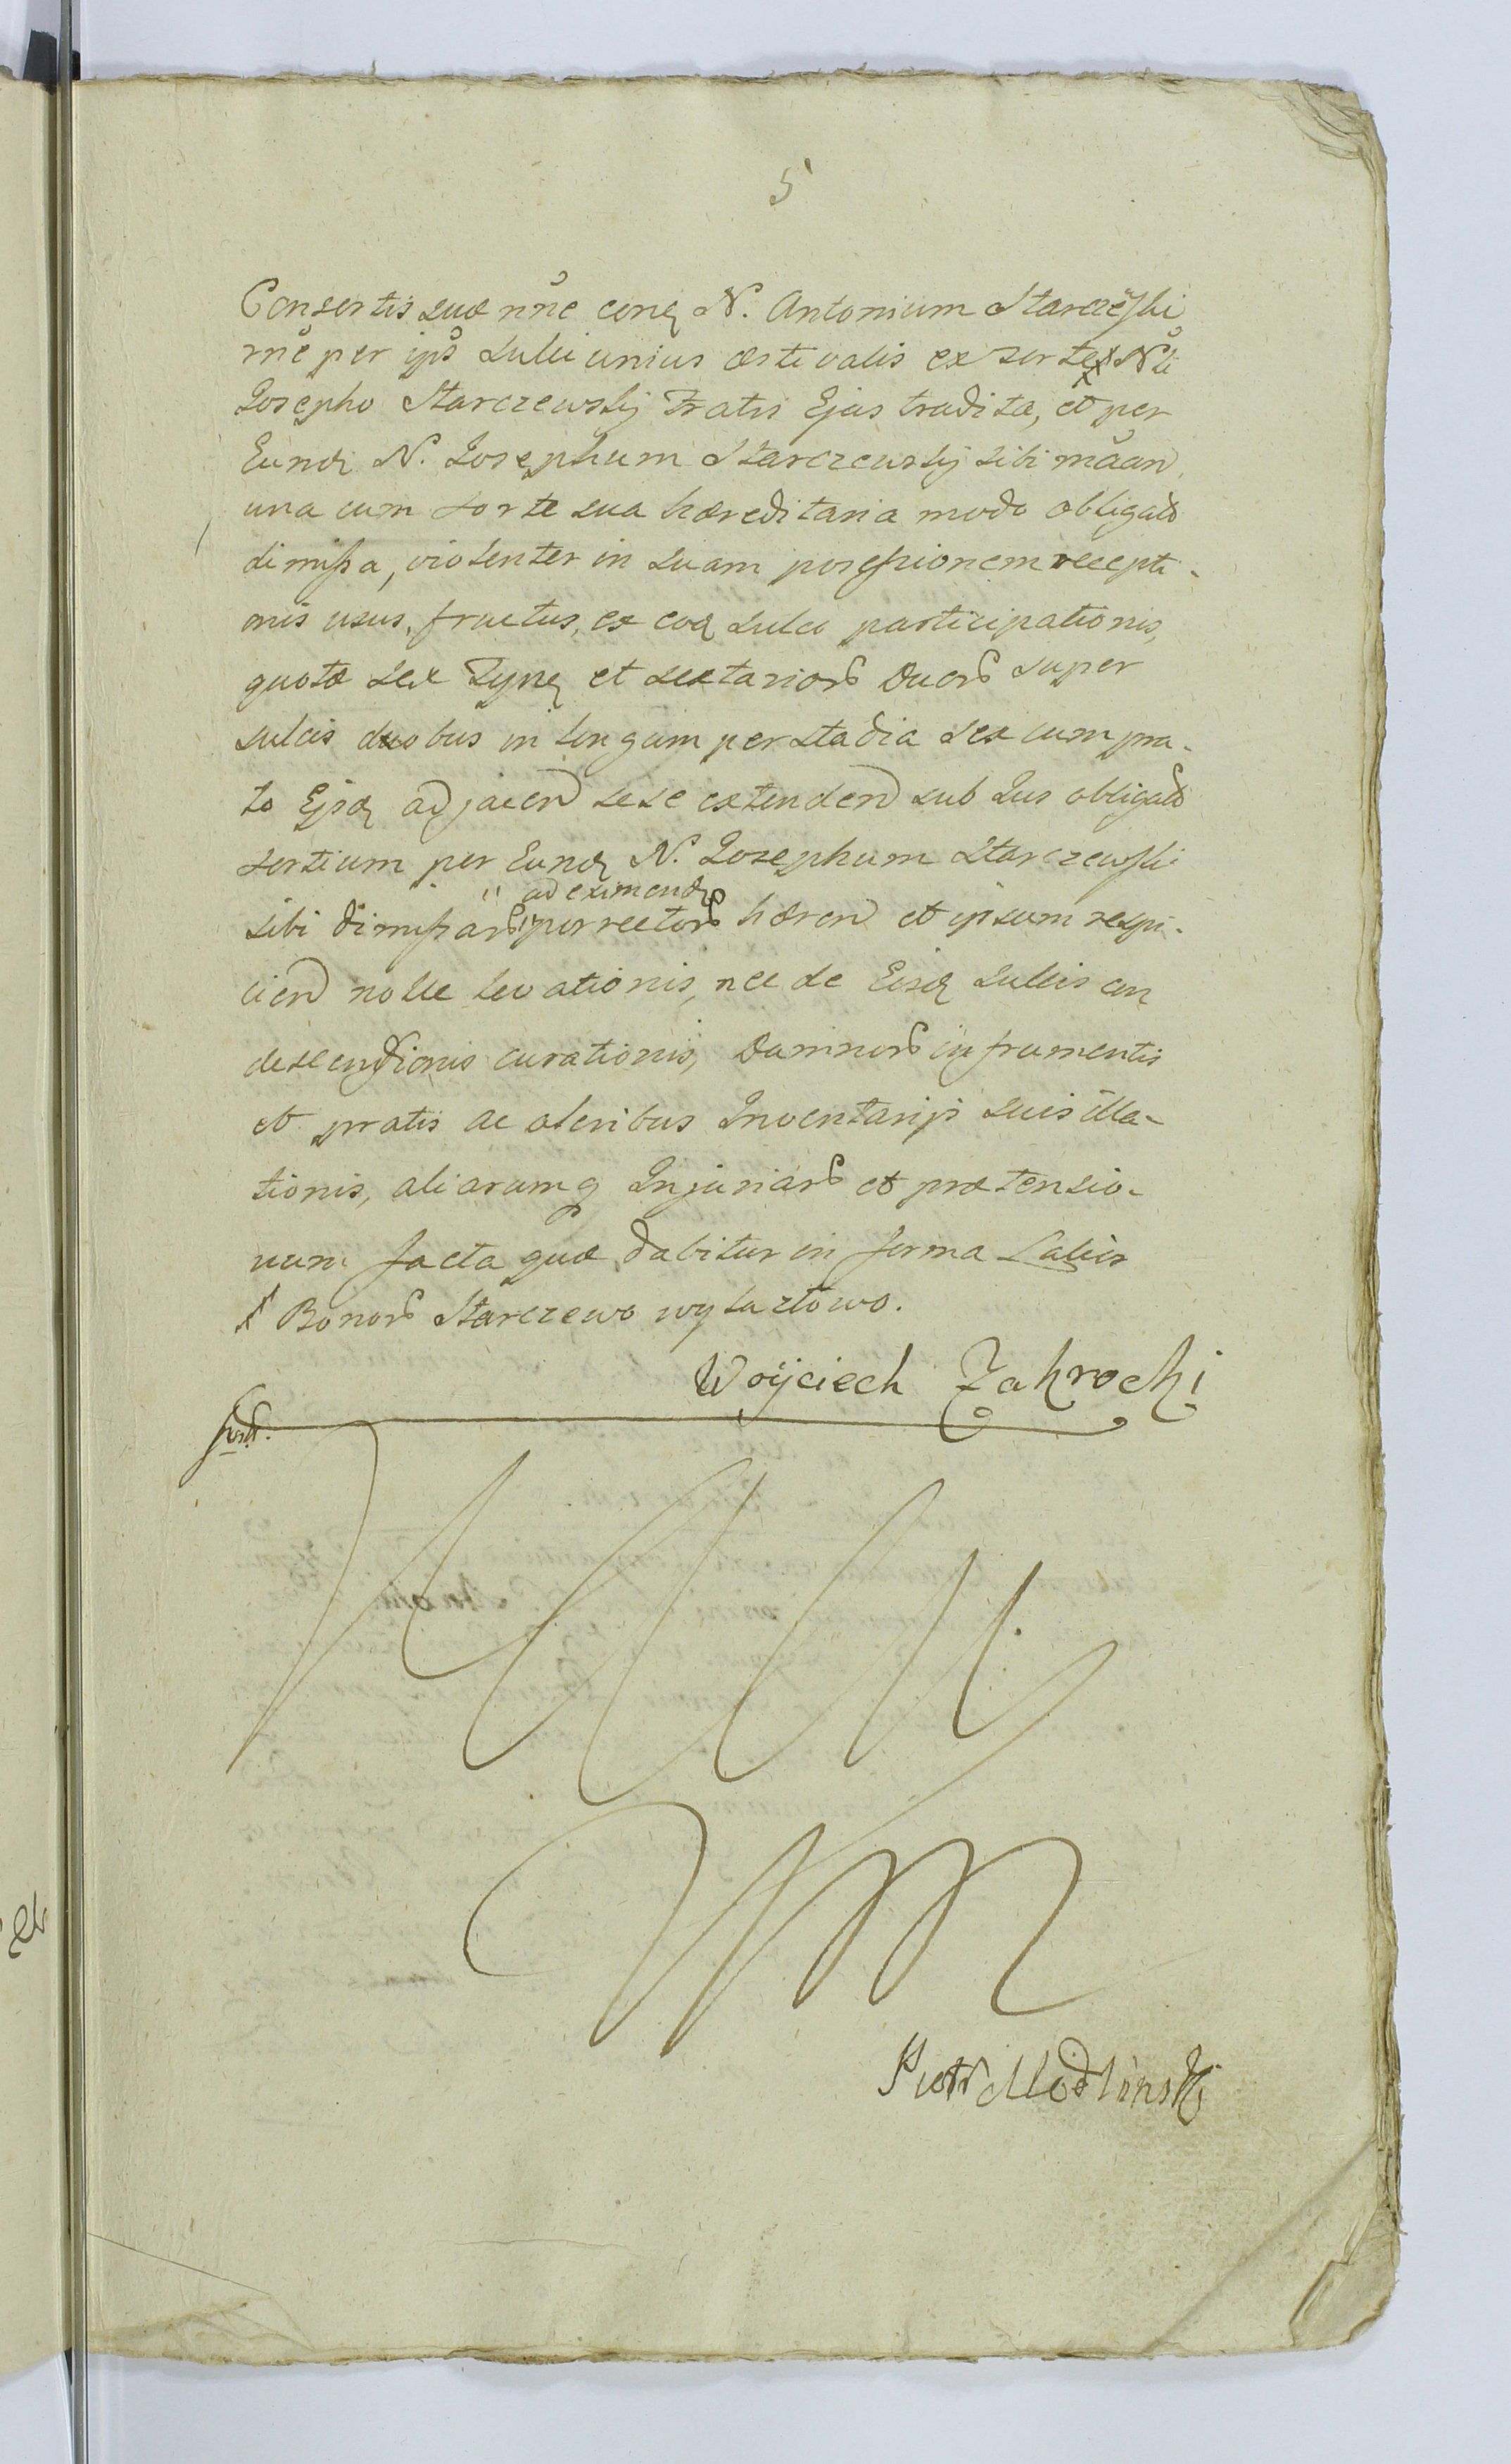 5
Consortis suæ nñe cong N. Antonium Starczewski
rñe per ips sulci unius æstivalis ex sorte Nli
Josepho Starczewskij Fratri Ejus tradita, et per
Eund N. Josephum Starczewskij sibi mãan,
una cum sorte sua hæreditaria modo obligato
dimissa, violenter in suam possessionem recepti-
onis usus, fructus, ex eod sulco participationis,
quotæ sex et sextarior duor super
sulcis duobus in longum per stadia sex cum pra-
to Ejsd adjacen sese extenden sub Jus obligato
sortium per Eund N. Josephum Starczewski
ad eximend
sibi dimissar porrector hæren et ipsum respi-
cien nolle levationis, nec de Eisd sulcis con
descensionis curationis, Damnor in frumentis
et pratis ac oleribus Inventarijs suis illa-
tionis, aliarumq Injuriar et prætensio-
num facta quæ dabitur in forma Laties
Bonor Starczewo wylaztowo.
Woÿciech Zakrocki
Piotr Modlinski